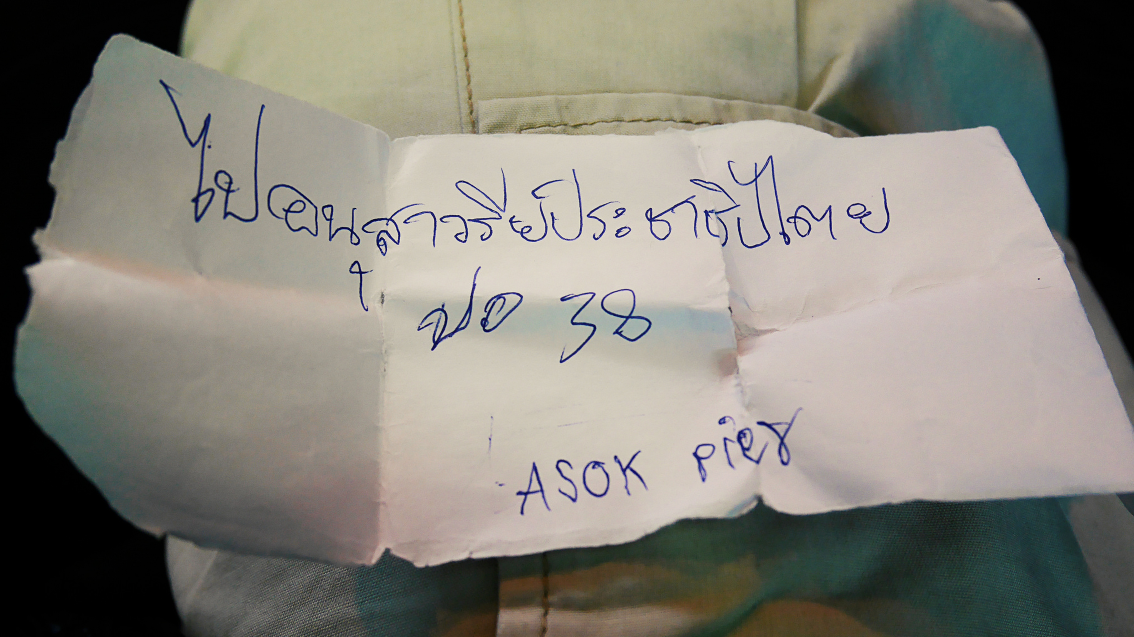 ไปอนุสาวรีย์ประชาธิปไตย
ปอ 38
ASOK pier